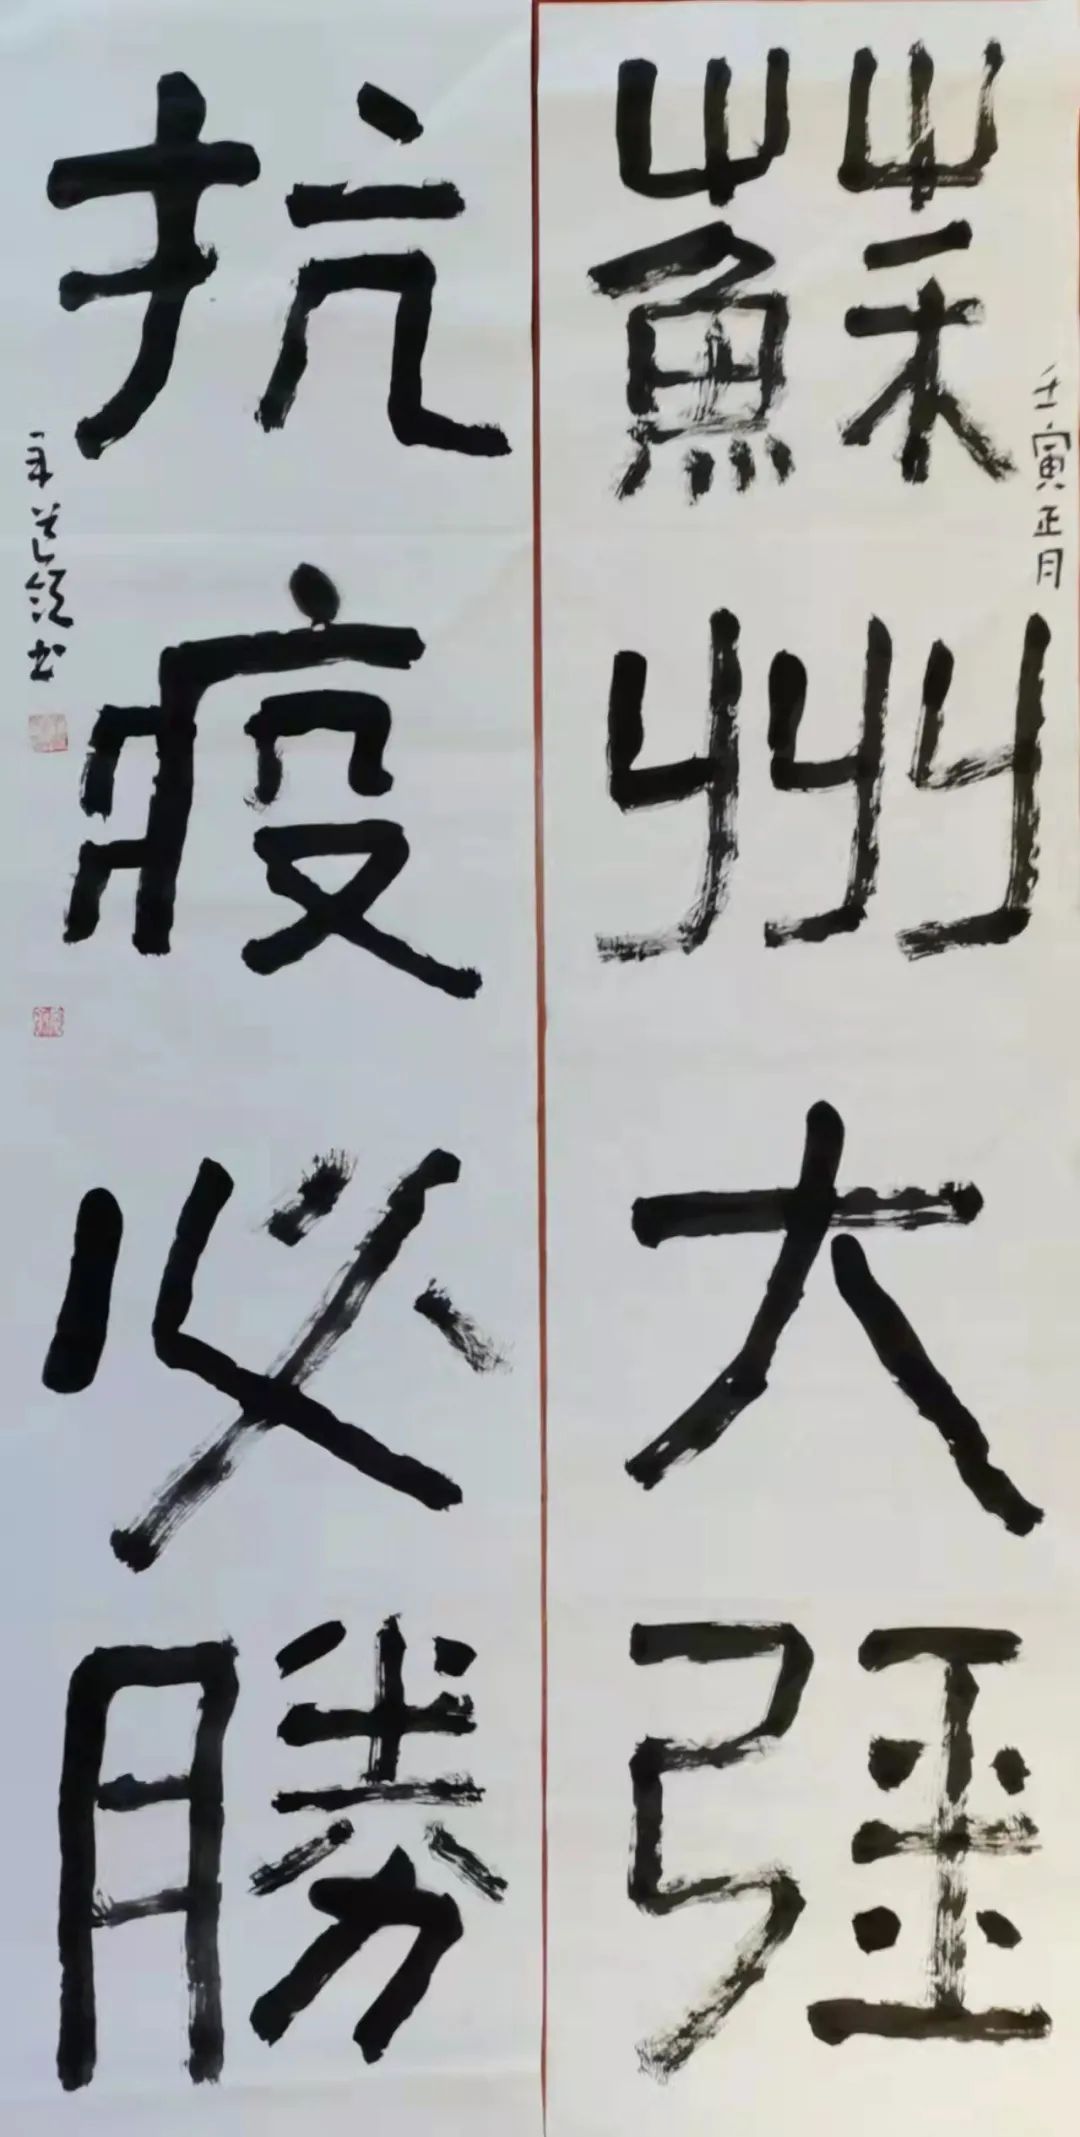 壬寅正月
蘇州大强
抗疫必勝
书